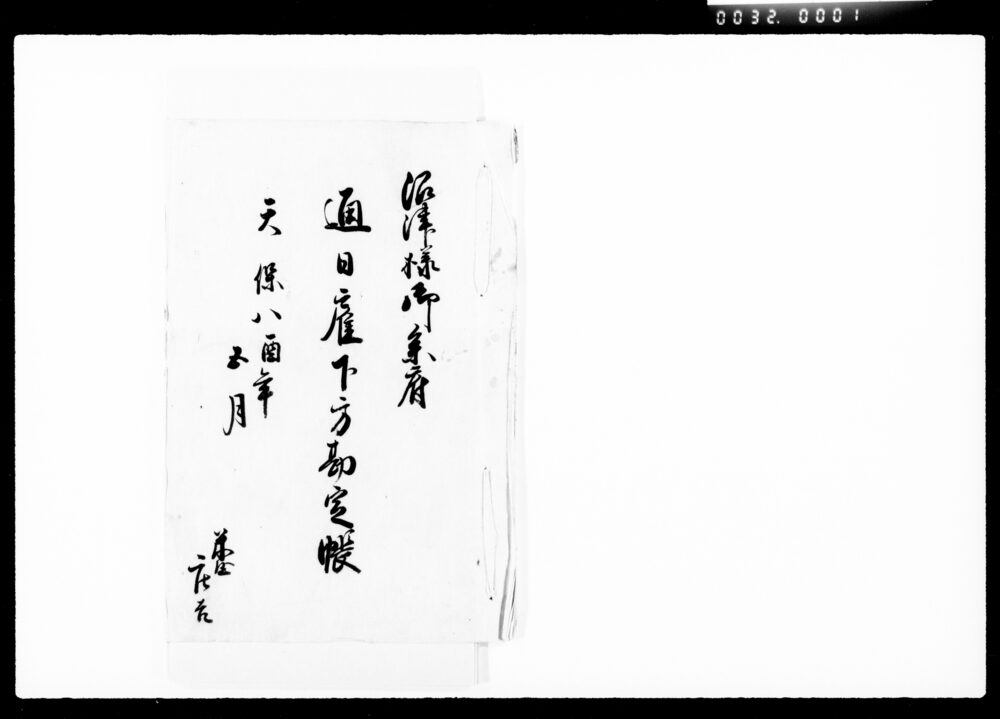 0032. 0001
沼津様御参府
通日雇下方勘定帳
天保八酉年
五月